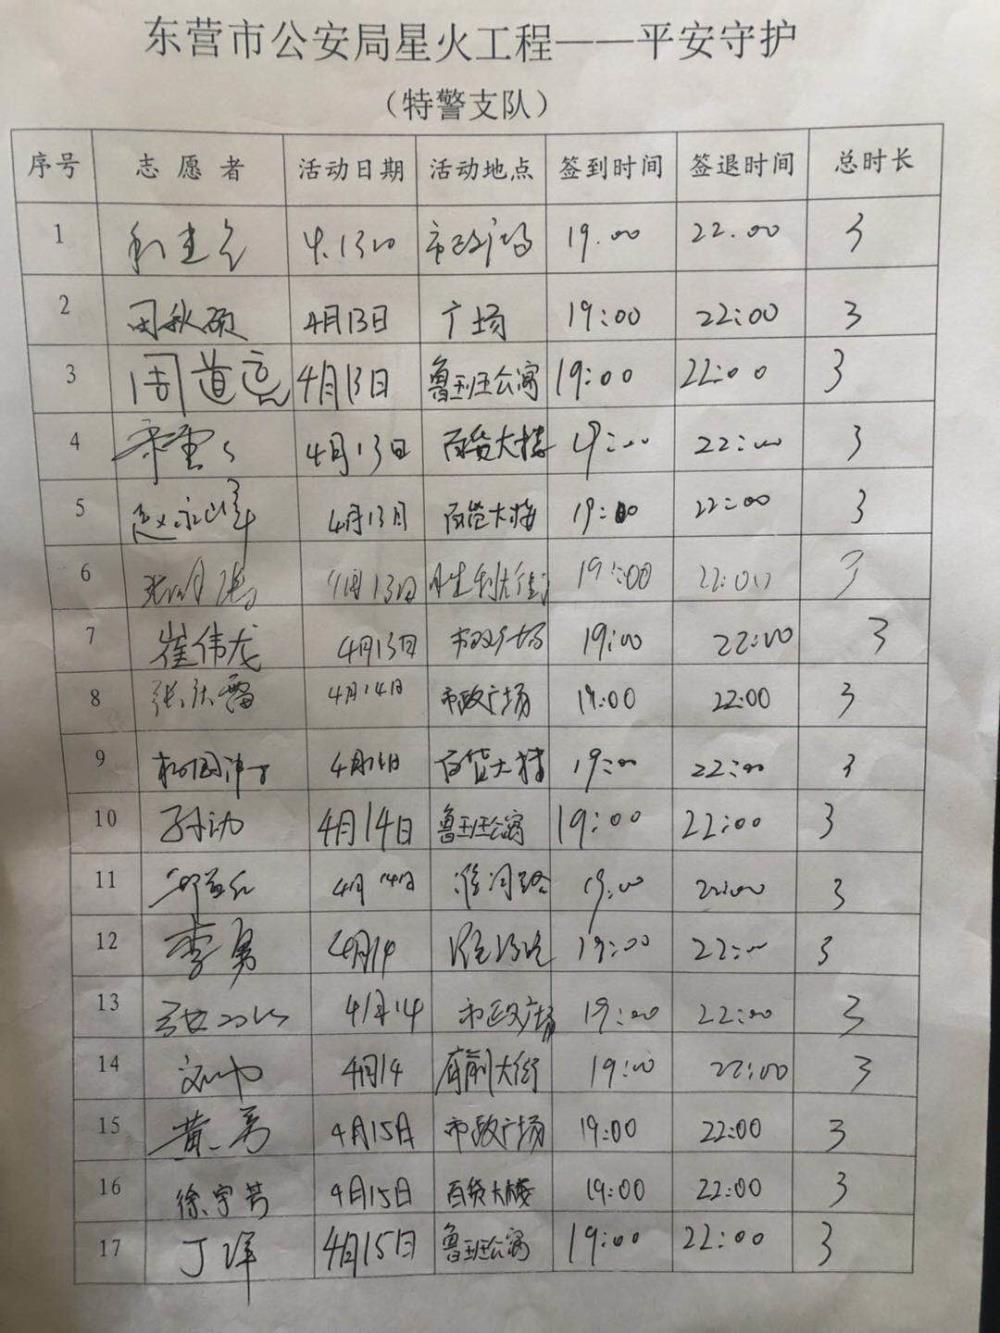 东营市公安局星火工程——平安守护
（特警支队）
序号 志愿者 活动日期 活动地点 签到时间 签退时间 总时长
1 4.13日 市政广场 19.00 22.00 3
2 周秋硕 4月13日 广场 19:00 22:00 3
3 周道远 4月13日 鲁班公寓 19:00 22:00 3
4 4月13日 百货大楼 19:00 22:00 3
5 赵永峰 4月13日 百货大楼 19:00 22:00 3
6 4月13日 胜利大街 19:00 22:00 3
7 崔伟龙 4月13日 市政广场 19:00 22:00 3
8 张庆霞 4月14日 市政广场 19:00 22:00 3
9 4月14日 百货大楼 19:00 22:00 3
10 孙动 4月14日 鲁班公寓 19:00 22:00 3
11 4月14日 淮河路 19:00 22:00 3
12 李勇 4月14 淮河路 19:00 22:00 3
13 4月14 市政广场 19:00 22:00 3
14 4月14 府前大街 19:00 22:00 3
15 黄勇 4月15日 市政广场 19:00 22:00 3
16 徐宇芳 4月15日 百货大楼 19:00 22:00 3
17 丁洋 4月15日 鲁班公寓 19:00 22:00 3